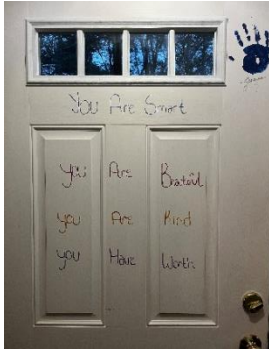 You Are Smart
You Are
you Are Kind
you Have Worth